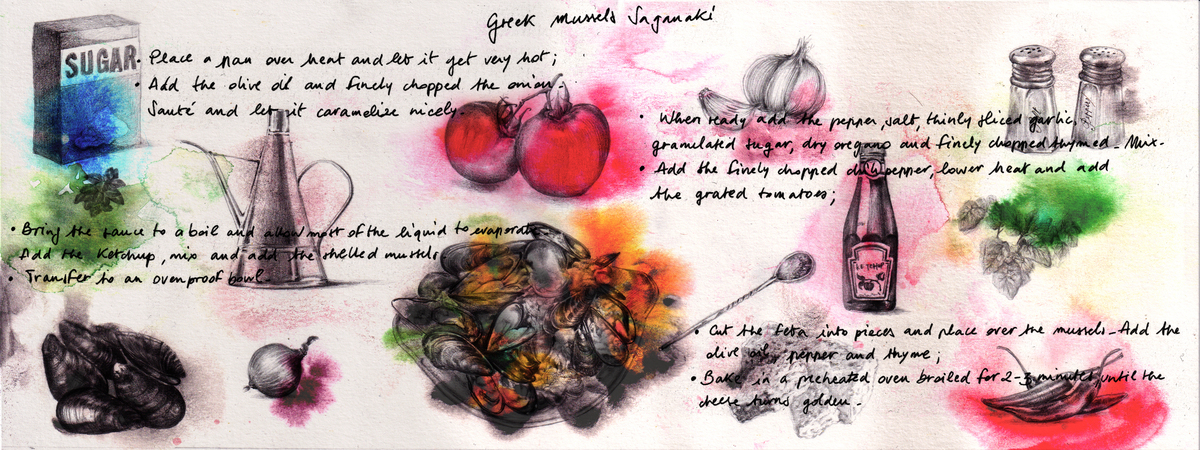 Greek Mussels Saganaki
SUGAR
• Place a pan over heat and let it get very hot;
• Add the olive oil and finely chopped the onion.
Sauté and let it caramelise nicely.
• When ready add the pepper, salt, thinly sliced garlic,
granulated sugar, dry oregano and finely chopped thymed. Mix.
• Add the finely chopped chili pepper, lower heat and add
the grated tomatoes;
• Bring the sauce to a boil and allow most of the liquid to evaporate.
Add the Ketchup, mix and add the shelled mussels
• Transfer to an ovenproof bowl.
• Cut the feta into pieces and place over the mussels. Add the
olive oil, pepper and thyme;
• Bake in a preheated oven broiled for 2-3 minutes, until the
cheese turns golden.